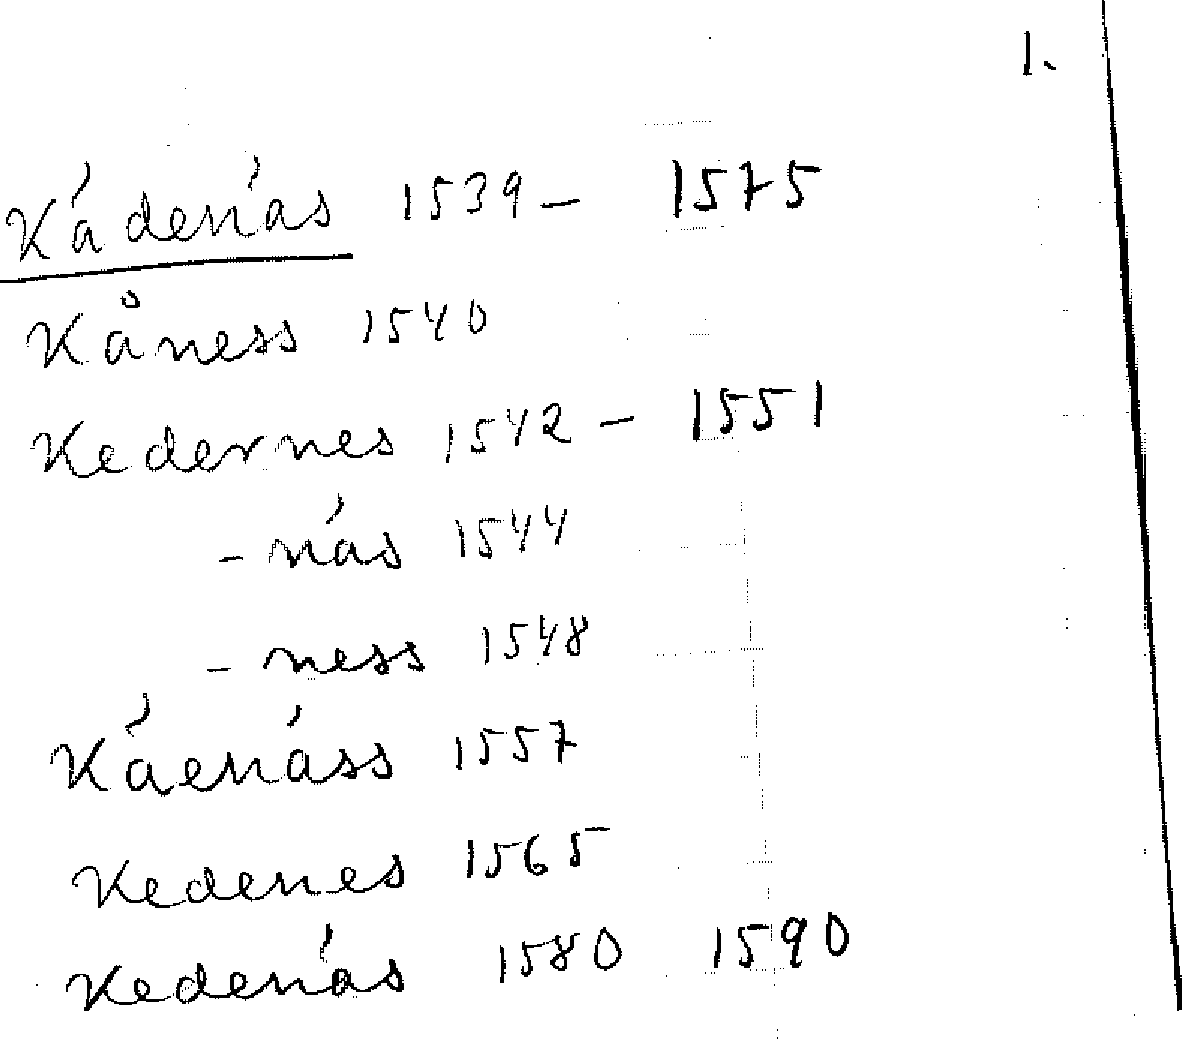 1.
Kádenás 1539 – 1575
Kåness 1540
Kedernes 1542 – 1551
- nás 1544
- ness 1548
Káenáss 1557
Kedenes 1565
Kedenás 1580 1590